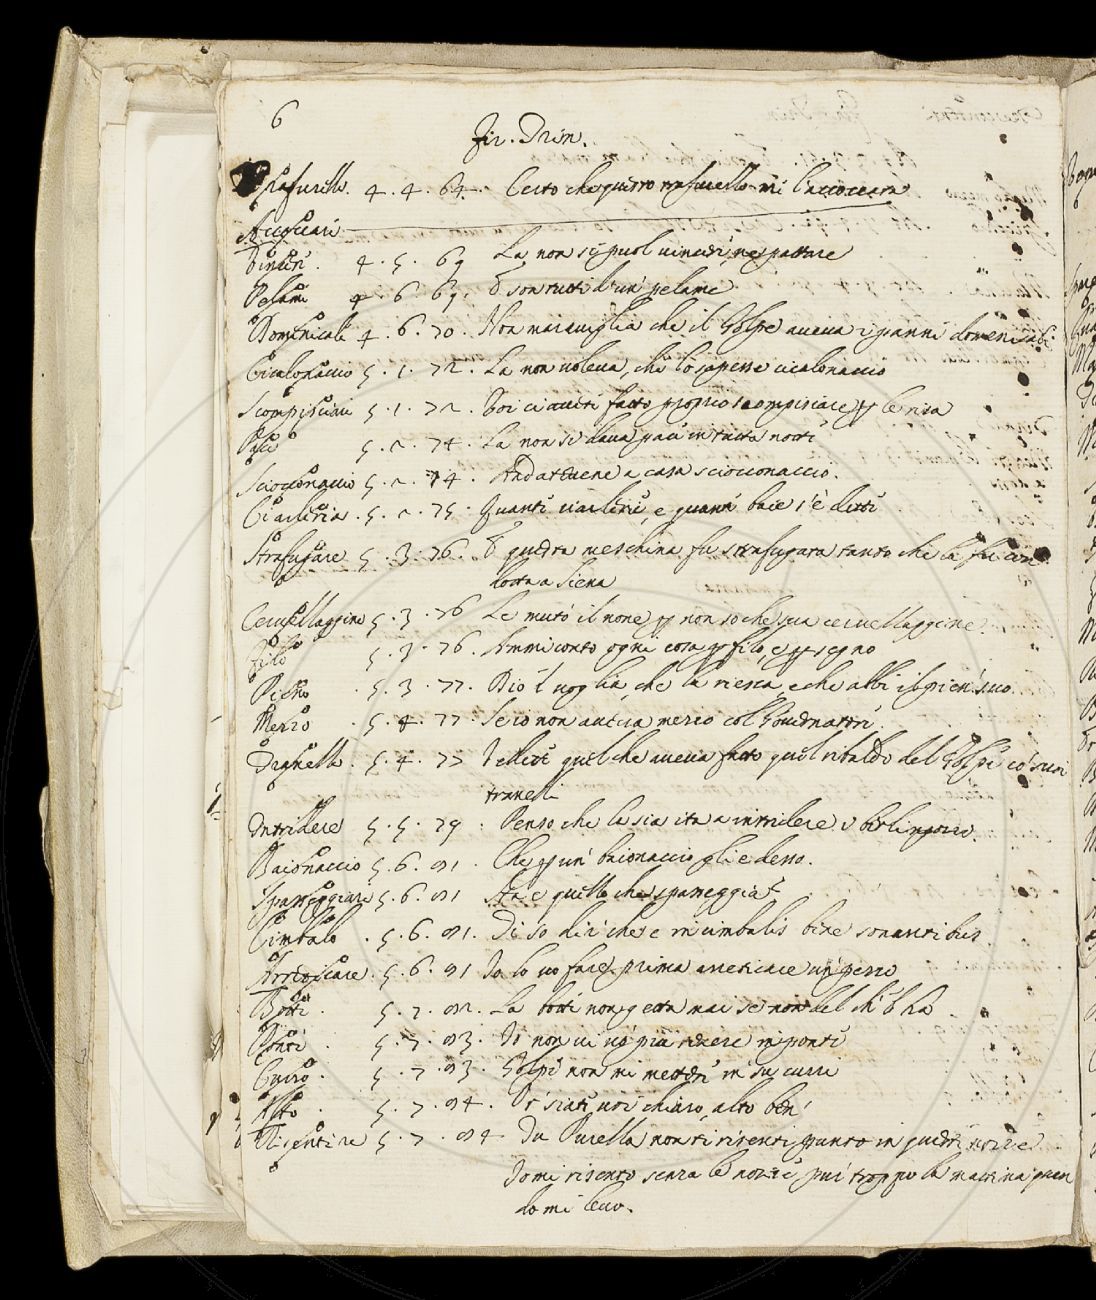 6
Fir. Trin.
Trafurello. 4. 4. 64. Certo che questo trafurello mi l'accoccara
Accoccare
Vincere. 4. 5. 69 La non si può vincere, ne pattare
Pelame 4. 6. 69. E son tutti d'un pelame
Domenicale 4. 6. 70. Non maraviglia che il Golpe aveva i panni domenicali
Cicalonaccio 5. 1. 72. La non voleva, che lo sapesse cicalonaccio
Scompisciare 5. 1. 72. Voi ci avete fatto proprio scompisciare p le risa
Pace 5. 2. 74. La non si dava pace in tutta notte
Scioccionaccio 5. 2. 74. Andatevene a casa scioccionaccio.
Ciarleria. 5. 2. 75. Quante ciarlerie, e quante baie s'è dette
Strafugare 5. 3. 76. E questa meschina fu strafugata tanto che la fu con
dotta a Siena
Cervellaggine 5. 3. 76 Le mutò il nome p non so che sua cervellaggine.
Filo 5. 3. 76. Ammi conto ogni cosa p filo, e p segno
Pieno . 5. 3. 77. Dio 'l voglia che la riesca, e che abbi il pien suo.
Mezzo . 5. 4. 77. Se io non aveva mezzo col Governatore.
5. 4. 77 quel che aveva fatto quel ribaldo del Golpe co' suoi
tranelli
Intridere 5. 5. 79. Penso che la sia ita a intridere i berlingozzi.
Baionaccio 5. 6. 81. Che p un baionaccio gli è desso.
Spasseggiare 5. 6. 81 è quello che spasseggia?
Cimbalo . 5. 6. 81. Di so dire che è in cimbalis bene sonantibus
5. 6. 81 Io lo vo fare prima un pezzo
Botte . 5. 7. 82. La botte non getta mai se non del ch'ell'ha
Ponte . 5. 7. 83. Io non vi vo più tenere in ponte
Curro. 5. 7. 83. Golpe non mi mettere in su curri
Alto . 5. 7. 84. Or siate voi chiaro, alto bene
Risentire 5. 7. 84 Tu Purella non ti risenti punto in queste nozze
Io mi risento senza le nozze pur troppo la mattina quan
do mi levo.